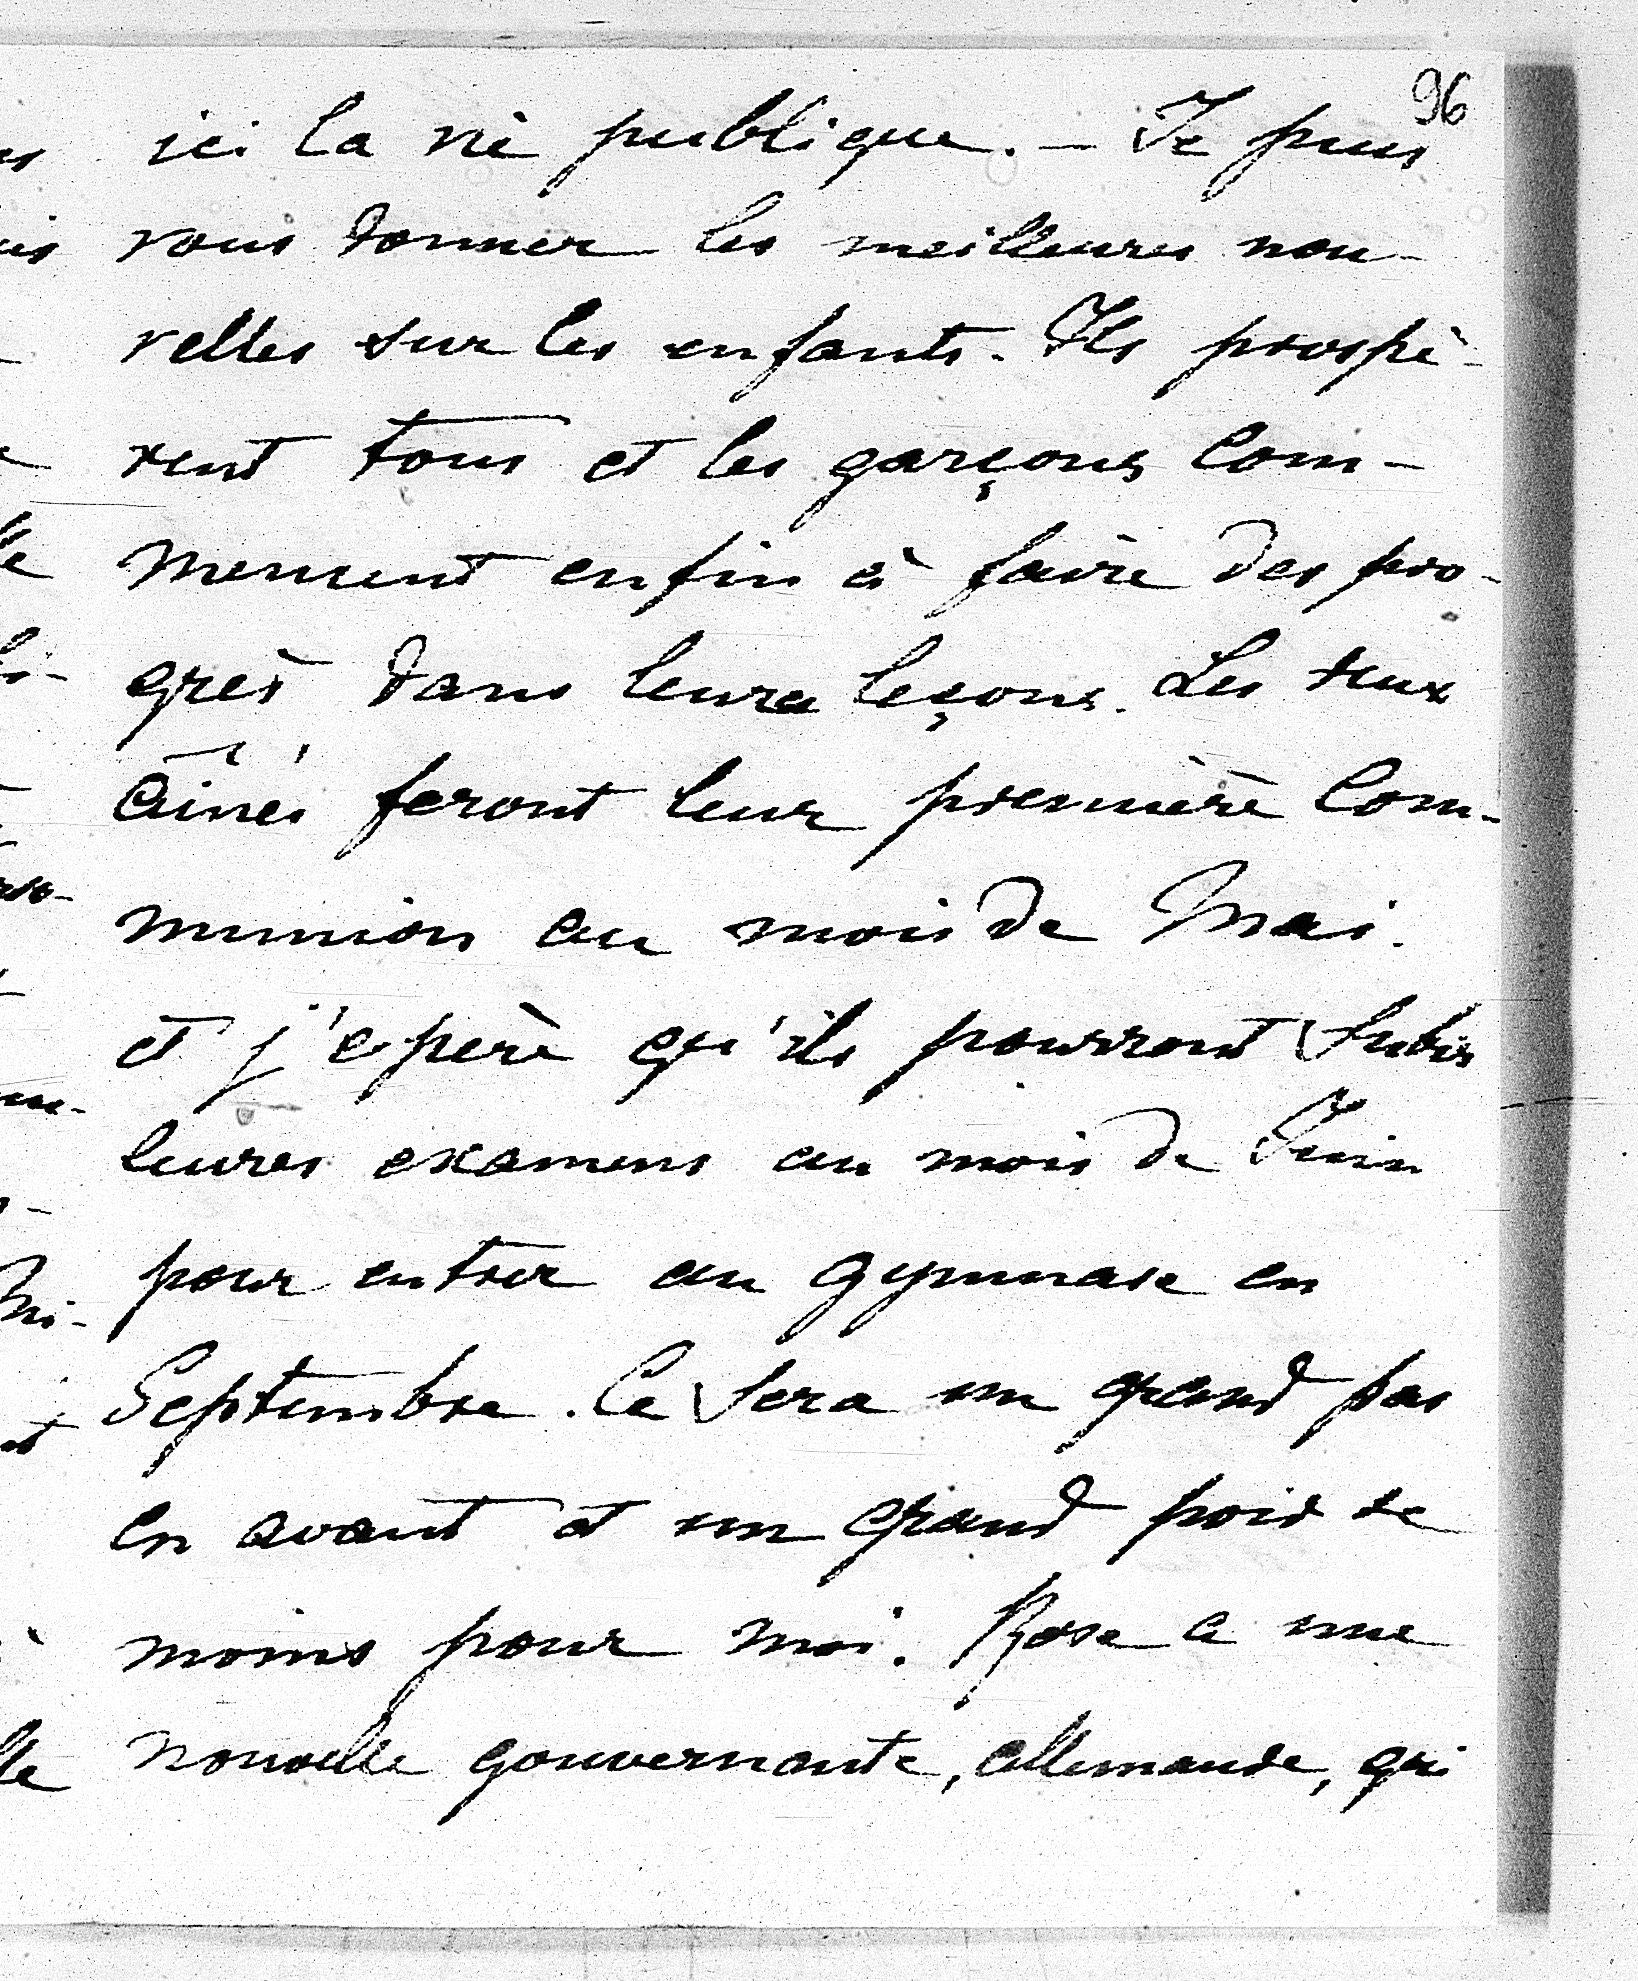 96
ici la vie publique. — Je puis
vous donner les meilleures nou-
velles sur les enfants. Ils prospè-
rent tous et les garçons com-
mencent enfin à faire des pro-
grès dans leurs leçons. Les deux
aînés feront leur première Com-
munion au mois de Mai.
et j'espère qu'ils pourront subir
leures examens au mois de Juin
pour entrer au gymnase en
Septembre. Ce sera un grand pas
en avant et un grand poid de
moins pour moi. Rose a une
nouvelle gouvernante, allemande, qui